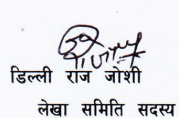 डिल्ली राज जोशी
लेखा समिति सदस्य